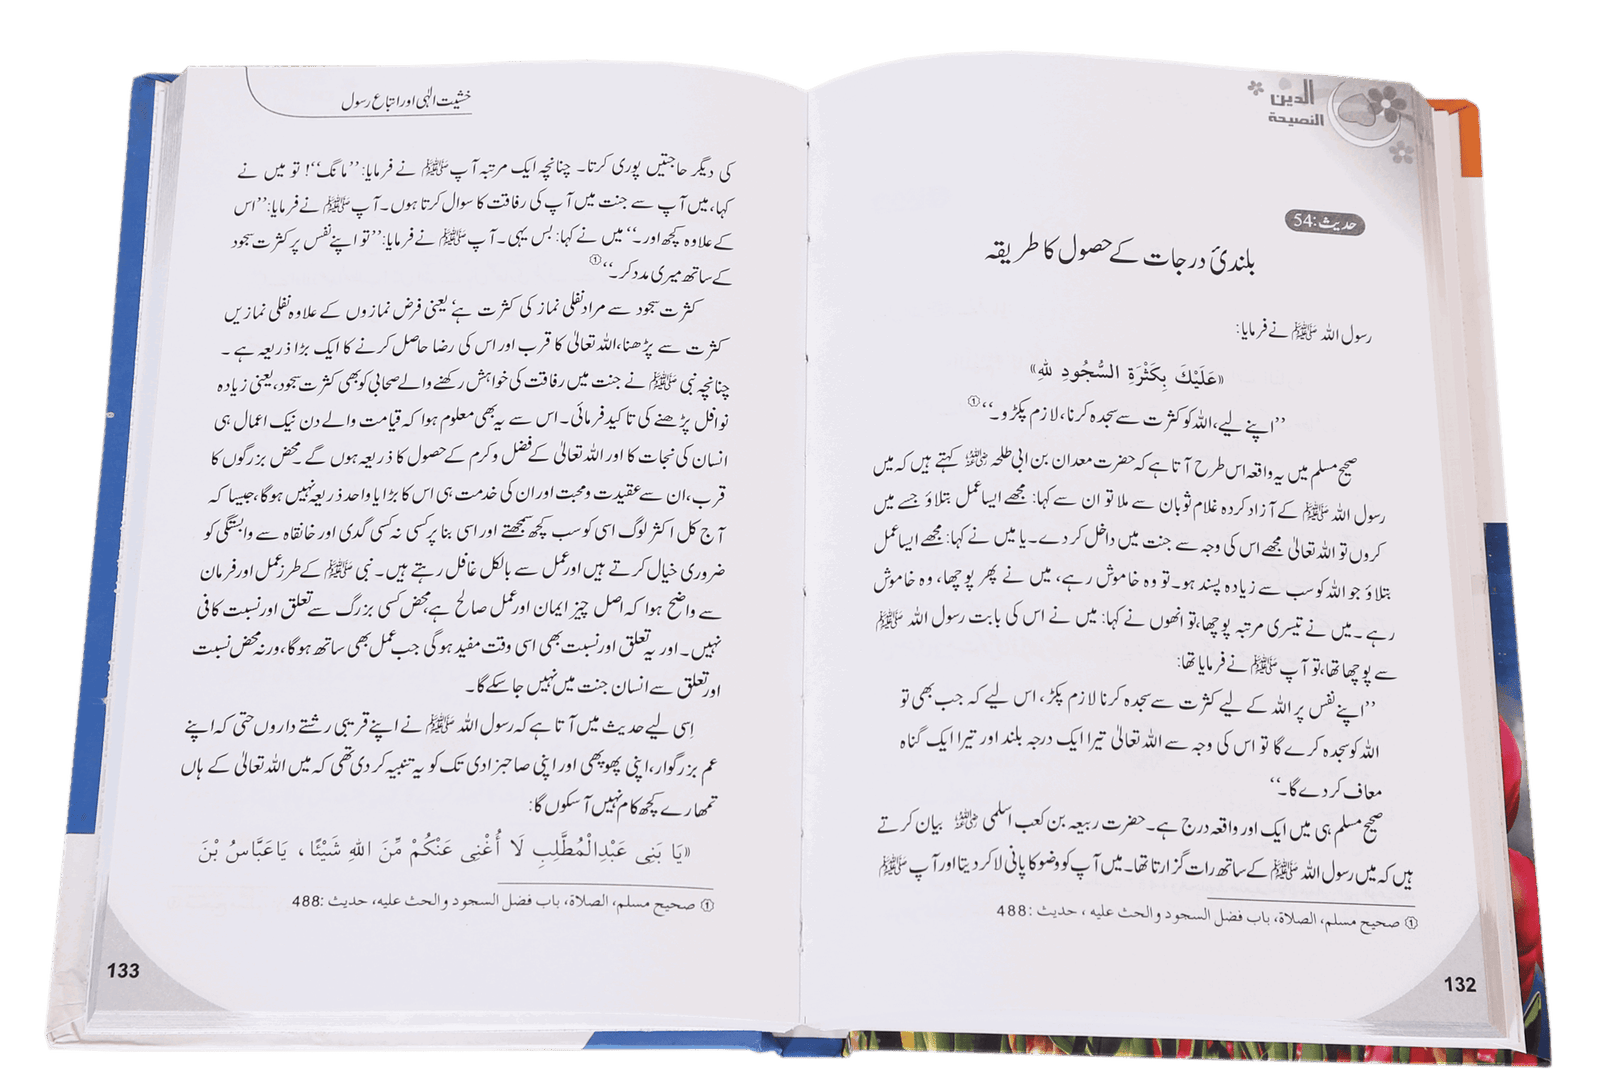 الدين
النصيحة
حدیث:54
بلندیٔ درجات کے حصول کا طریقہ
رسول اللہ ﷺ نے فرمایا:
«عَلَيْكَ بِكَثْرَةِ السُّجُودِ لِلّٰهِ»
’’اپنے لیے، اللہ کو کثرت سے سجدہ کرنا، لازم پکڑو۔‘‘①
صحیح مسلم میں یہ واقعہ اس طرح آتا ہے کہ حضرت معدان بن ابی طلحہ رضی اللہ عنہ کہتے ہیں کہ میں
رسول اللہ ﷺ کے آزاد کردہ غلام ثوبان سے ملا تو ان سے کہا: مجھے ایسا عمل بتلاؤ جسے میں
کروں تو اللہ تعالیٰ مجھے اس کی وجہ سے جنت میں داخل کر دے۔ یا میں نے کہا: مجھے ایسا عمل
بتلاؤ جو اللہ کو سب سے زیادہ پسند ہو۔ تو وہ خاموش رہے، میں نے پھر پوچھا، وہ خاموش
رہے۔ میں نے تیسری مرتبہ پوچھا، تو انھوں نے کہا: میں نے اس کی بابت رسول اللہ ﷺ
سے پوچھا تھا، تو آپ ﷺ نے فرمایا تھا:
’’اپنے نفس پر اللہ کے لیے کثرت سے سجدہ کرنا لازم پکڑ، اس لیے کہ جب بھی تو
اللہ کو سجدہ کرے گا تو اس کی وجہ سے اللہ تعالیٰ تیرا ایک درجہ بلند اور تیرا ایک گناہ
معاف کر دے گا۔‘‘
صحیح مسلم ہی میں ایک اور واقعہ درج ہے۔ حضرت ربیعہ بن کعب اسلمی رضی اللہ عنہ بیان کرتے
ہیں کہ میں رسول اللہ ﷺ کے ساتھ رات گزارتا تھا۔ میں آپ کو وضو کا پانی لا کر دیتا اور آپ ﷺ
① صحيح مسلم، الصلاة، باب فضل السجود والحث عليه، حديث: 488
132
خشیت الٰہی اور اتباع رسول
کی دیگر حاجتیں پوری کرتا۔ چنانچہ ایک مرتبہ آپ ﷺ نے فرمایا: ’’مانگ‘‘! تو میں نے
کہا، میں آپ سے جنت میں آپ کی رفاقت کا سوال کرتا ہوں۔ آپ ﷺ نے فرمایا: ’’اس
کے علاوہ کچھ اور۔‘‘ میں نے کہا: بس یہی۔ آپ ﷺ نے فرمایا: ’’تو اپنے نفس پر کثرت سجود
کے ساتھ میری مدد کر۔‘‘①
کثرت سجود سے مراد نفلی نماز کی کثرت ہے‘ یعنی فرض نمازوں کے علاوہ نفلی نمازیں
کثرت سے پڑھنا، اللہ تعالیٰ کا قرب اور اس کی رضا حاصل کرنے کا ایک بڑا ذریعہ ہے۔
چنانچہ نبی ﷺ نے جنت میں رفاقت کی خواہش رکھنے والے صحابی کو بھی کثرت سجود، یعنی زیادہ
نوافل پڑھنے کی تاکید فرمائی۔ اس سے یہ بھی معلوم ہوا کہ قیامت والے دن نیک اعمال ہی
انسان کی نجات کا اور اللہ تعالیٰ کے فضل و کرم کے حصول کا ذریعہ ہوں گے۔ محض بزرگوں کا
قرب، ان سے عقیدت و محبت اور ان کی خدمت ہی اس کا بڑا یا واحد ذریعہ نہیں ہوگا، جیسا کہ
آج کل اکثر لوگ اسی کو سب کچھ سمجھتے اور اسی بنا پر کسی نہ کسی گدی اور خانقاہ سے وابستگی کو
ضروری خیال کرتے ہیں اور عمل سے بالکل غافل رہتے ہیں۔ نبی ﷺ کے طرز عمل اور فرمان
سے واضح ہوا کہ اصل چیز ایمان اور عمل صالح ہے، محض کسی بزرگ سے تعلق اور نسبت کافی
نہیں۔ اور یہ تعلق اور نسبت بھی اسی وقت مفید ہوگی جب عمل بھی ساتھ ہوگا، ورنہ محض نسبت
اور تعلق سے انسان جنت میں نہیں جا سکے گا۔
اِسی لیے حدیث میں آتا ہے کہ رسول اللہ ﷺ نے اپنے قریبی رشتے داروں حتی کہ اپنے
عم بزرگوار، اپنی پھوپھی اور اپنی صاحبزادی تک کو یہ تنبیہ کر دی تھی کہ میں اللہ تعالیٰ کے ہاں
تمھارے کچھ کام نہیں آ سکوں گا:
«يَا بَنِى عَبْدِالْمُطَّلِبِ لَا أُغْنِى عَنْكُمْ مِّنَ اللهِ شَيْئًا، يَاعَبَّاسُ بْنَ
① صحيح مسلم، الصلاة، باب فضل السجود والحث عليه، حديث: 488
133